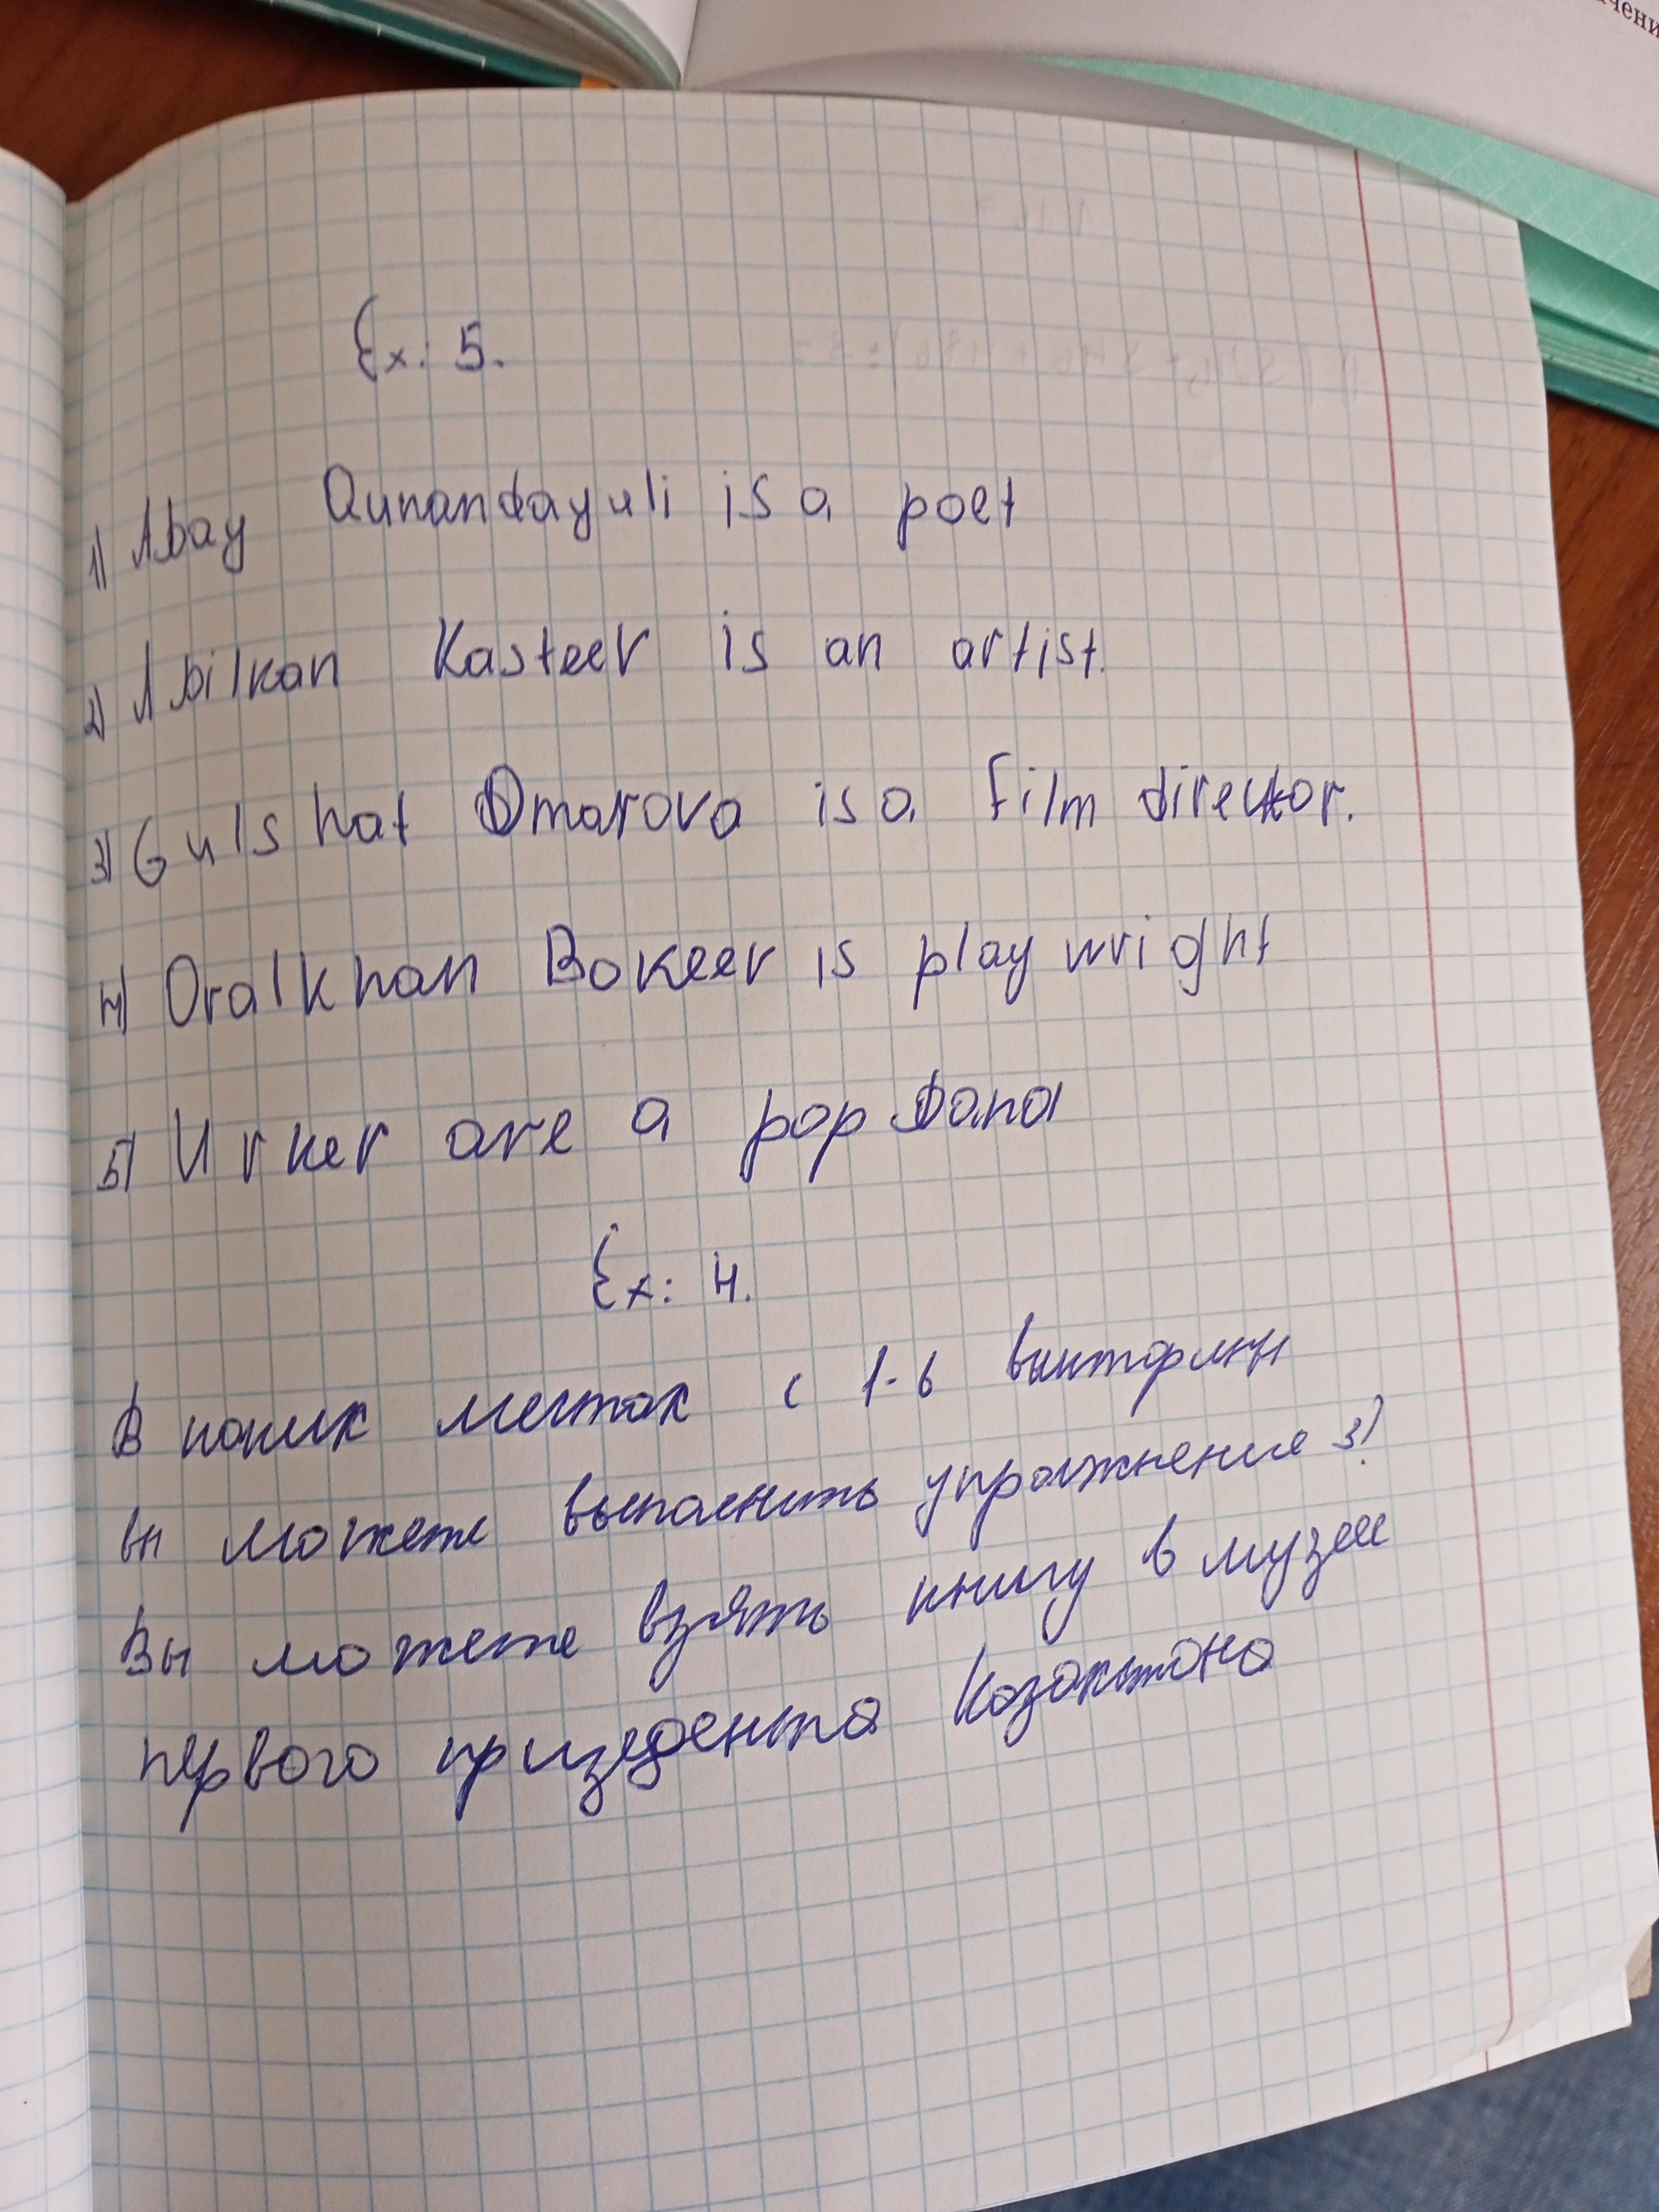 чени
Ex: 5.
1) Abay Qunandayuli is a poet
2) Abilkan Kasteev is an artist.
3) Gulshat Omarova is a film director.
4) Oralkhan Bokeev is playwright
5) Urker are a pop band
Ex: 4.
В каких местах с 1-6 викторин
вы можете выполнить упражнение 3)
Вы можете взять книгу в музее
первого призедента Казакстана